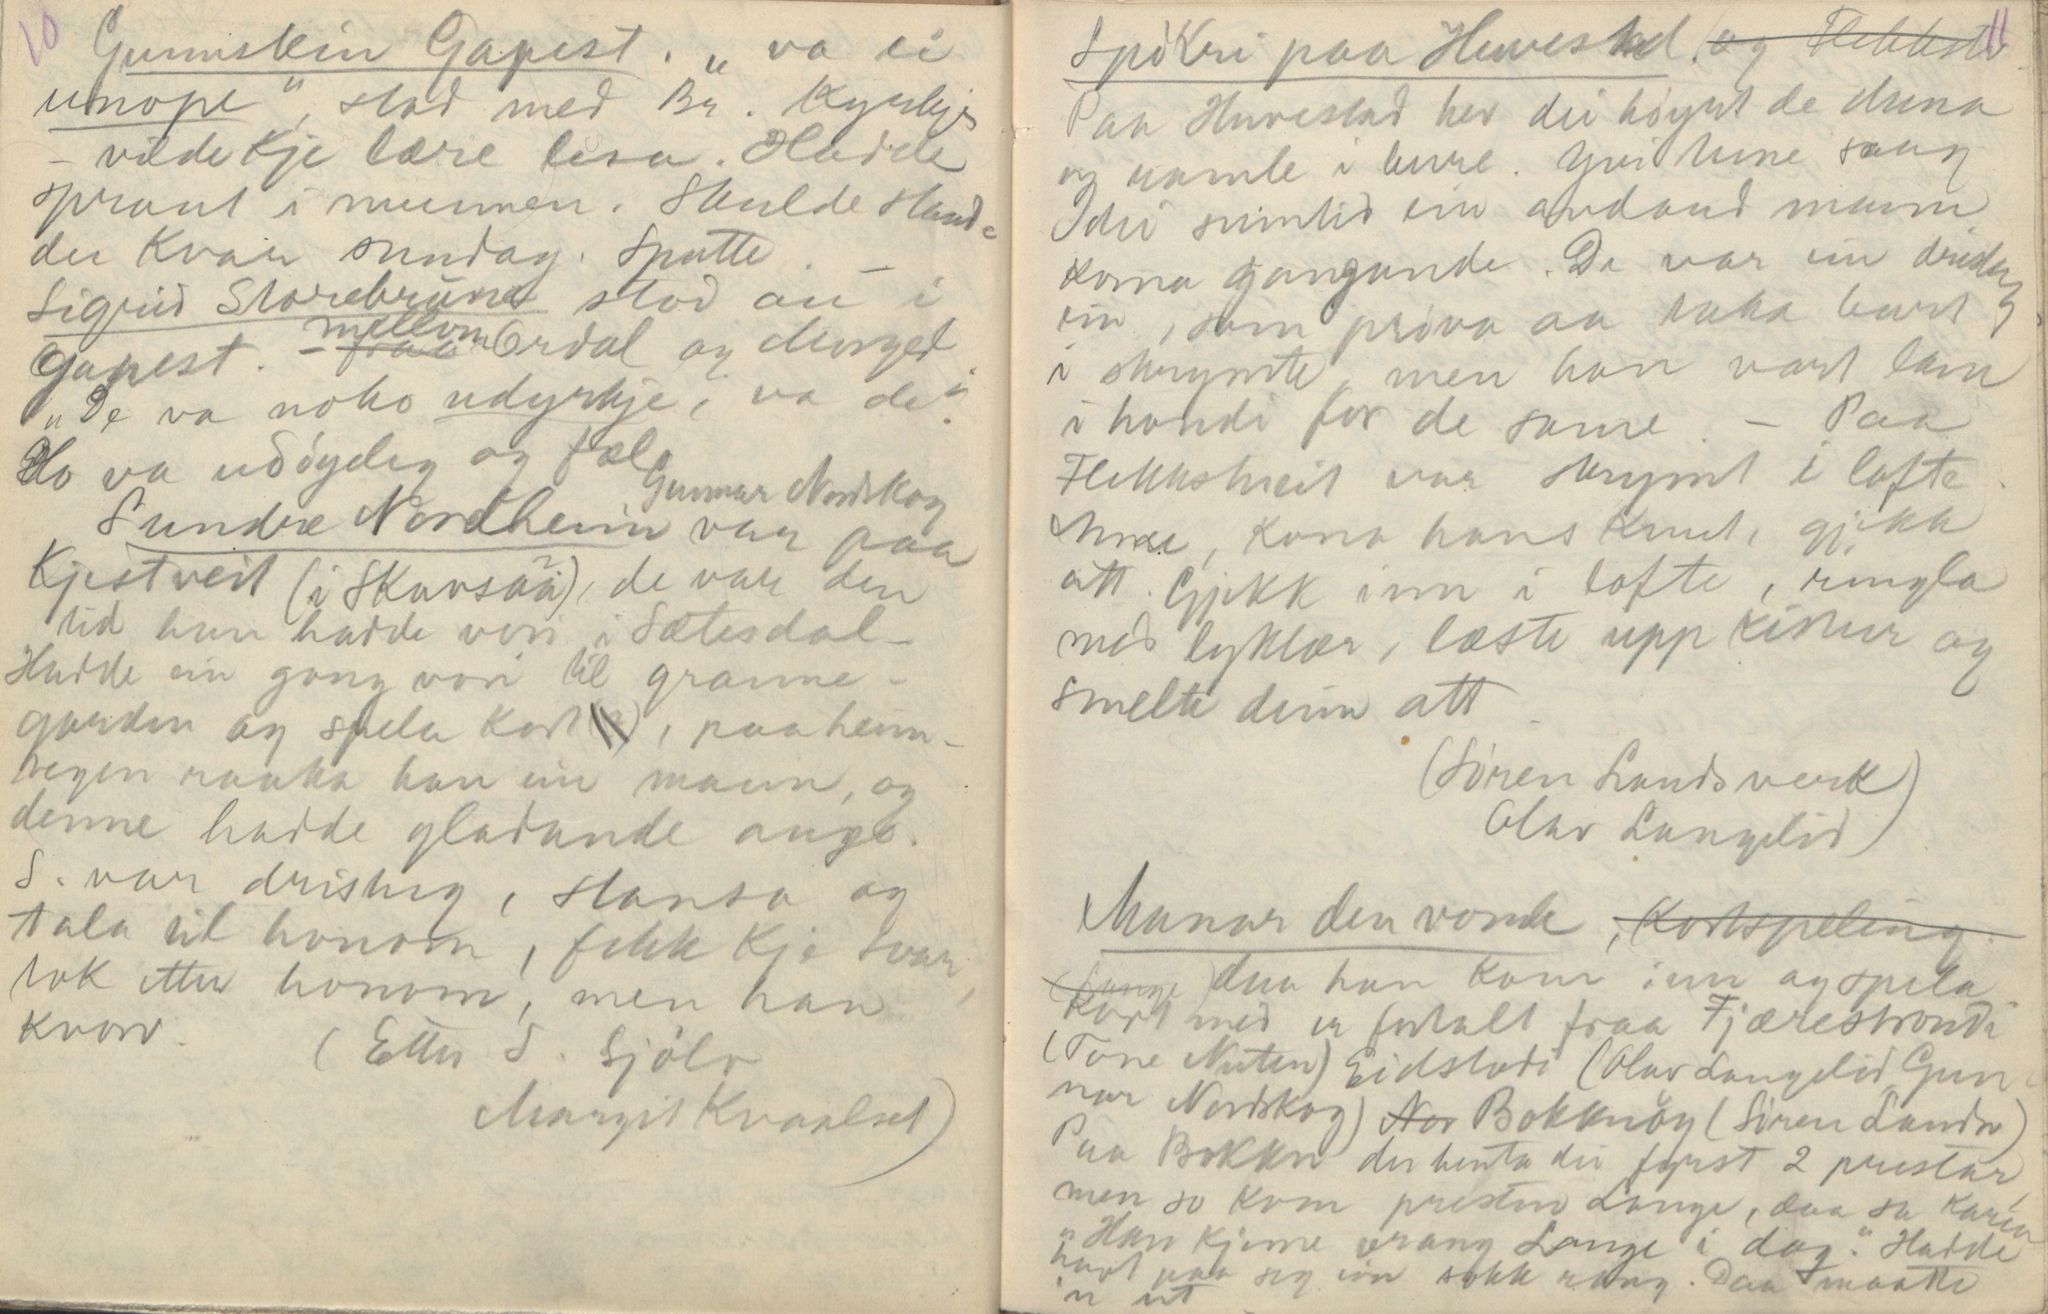 10
Gunnstein Gapest. "va ei
unope", stod med Br. Kyrkje
- vilde kje lære lesa. Hadde
spraut i munnen. Skulde stand-
de kvar sundag. Sputte. -
Sigrid Storebrune stod au i
mellom
Gapest. - fraa Ordal og
"De va noko udyrkje, va de".
Ho va udøyeleg og fæl
Gunnar Nordskog
Sundre Nordheim var paa
Kjestveit (i Skavsåå), de var den
tid han hadde vori i Sætesdal-
Hadde ein gong vori til granne-
garden og spela kort, paa heim-
vegen raaka han ein mann, og
denne hadde gladande augo.
S. var dristug, stansa og
tala til honom, fekk kje svar,
tok etter honom, men han
kvarv.
(Etter S. Sjølv
Margit Kvaalset)
11
Spikri paa Huvestad, og Flekkstv
Paa Huvestad hev dei høyrt de duna
og ramle i bure. Gvi hine saag
dei sumtid ein avdaud mann
koma gangande. De var ein
ein, som prøva aa taka burt
i skrymte, men han vart lam
i hondi for de same. - Paa
Flekkstveit var skrymt i lofte.
kona hans Knut, gjekk
att. Gjekk inn i lofte, ringla
med lyklar, læste upp kistur og
smelte deim att.
(Søren Landsverk)
Olav Langelid)
Manar den vonde, Kortspeling.
(Lange) daa han kom inn og spela
kort med er fortalt fraa Fjærestrondi
(Tone Nuten) Eidstodi (Olav Langelid Gun-
nar Nordskog) Nor Bokknøy (Søren Landsv)
Paa Bokkn der henta dei fyrst 2 prestar,
men so kom presten Lange, daa sa Karin
"Han kjeme vrang Lange i dag." Hadde
havt paa seg ein sokk rang. Daa maatte
'n ut